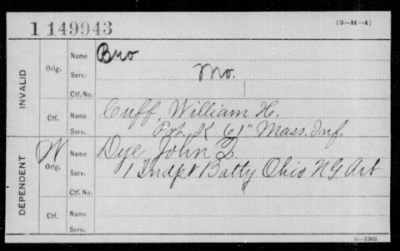 1149943
(3-H-4)
INVALID
Orig.
Name Bno
Serv. Mo.
Ctf. No.
Ctf.
Name Cuff, William H.
Serv. Pvt. K 61" Mass. Inf.
DEPENDENT
W
Orig.
Name Dye John Z.
Serv. 1 Indpt Batty Ohio NG Art
Ctf. No.
Ctf.
Name
Serv.
6-1903